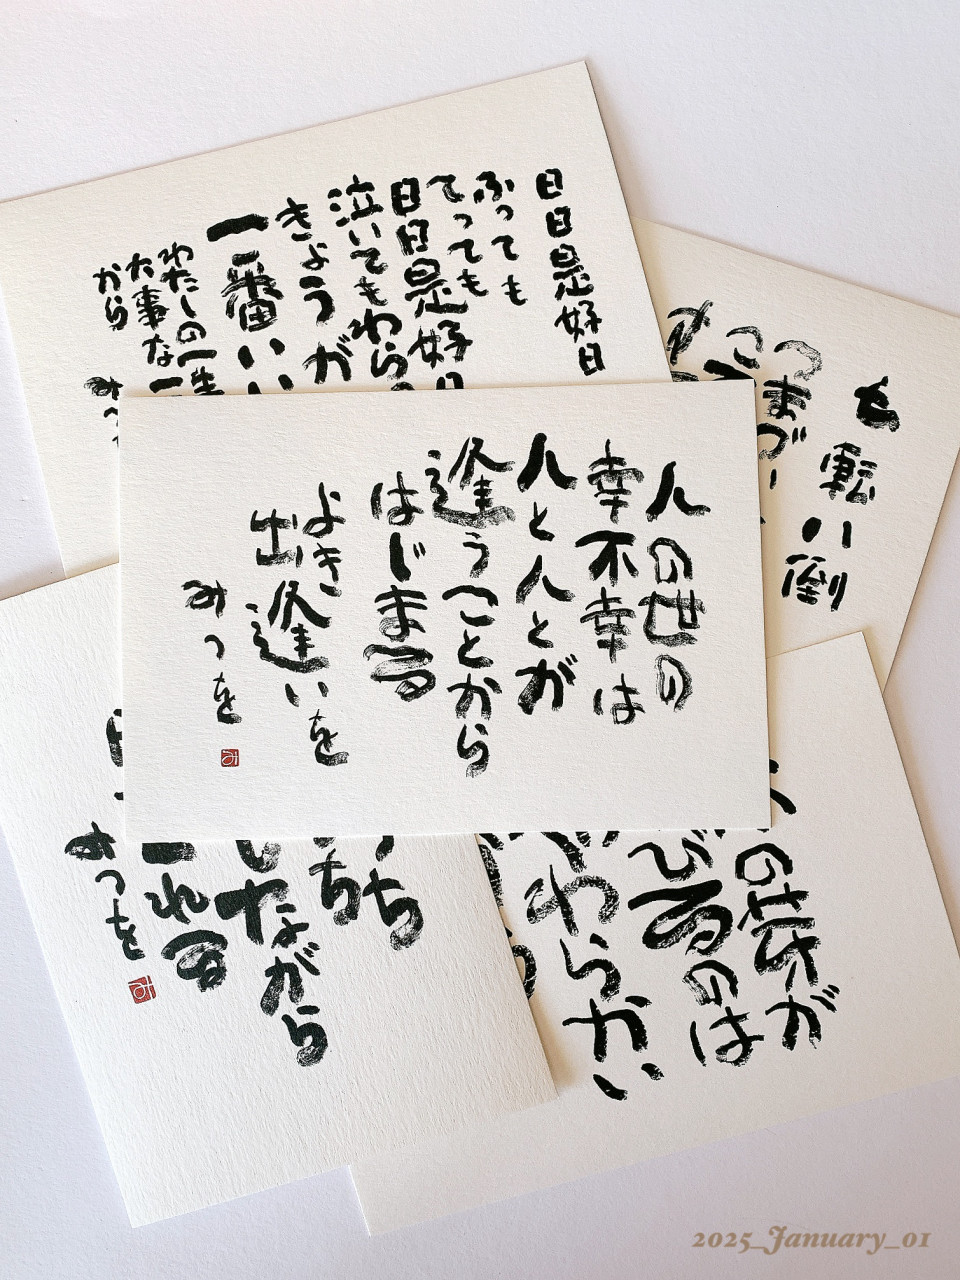 日日是好日
ふっても
てっても
日日是好日
泣いてもわら
きょうが
一番いい
わたしの一生
大事な一
から
みつ
七転八倒
つまづ
こ
人の世の
幸不幸は
人と人とが
逢うことから
はじまる
よき
出逢いを
みつを
み
の芽が
びるのは
やわらかい
ち
ちち
しながら
れる
みつを
み
2025_January_01